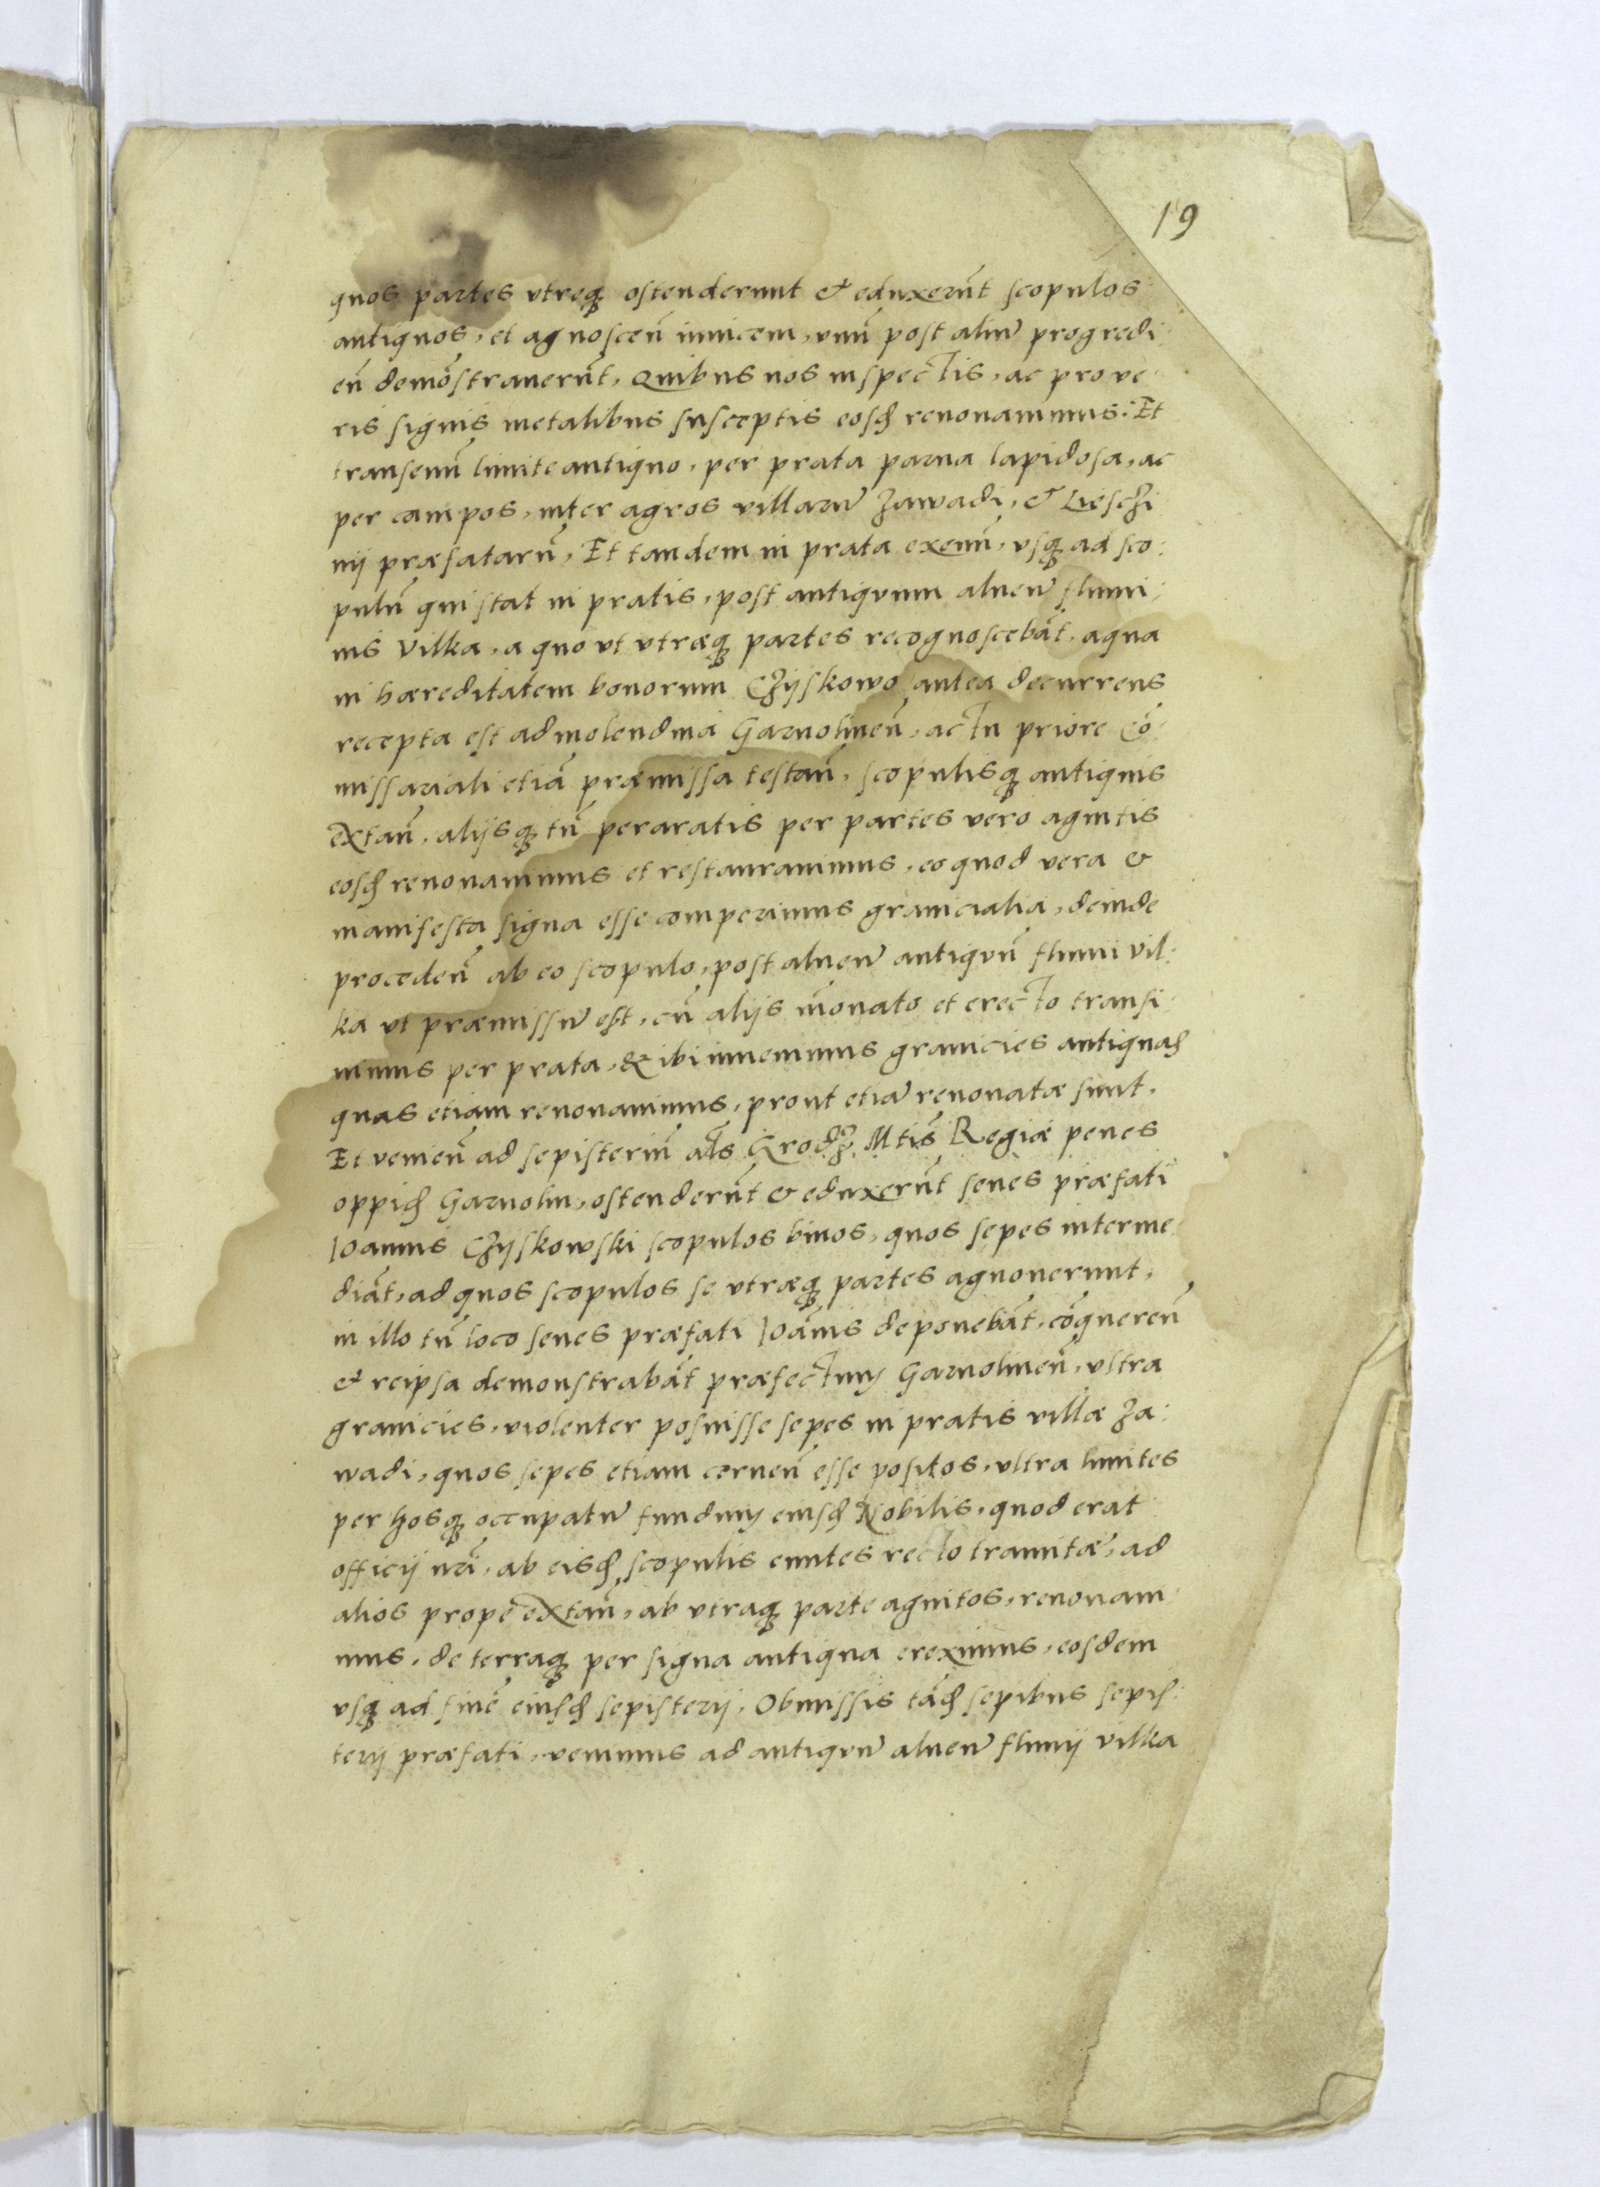 19
quos partes utreq₃ ostenderunt & eduxerūt scopulos
antiquos, et agnosceñ inuicem, unū post aliū progredi
eñ demōstrauerūt, Quibus nos inspectis, ac pro ve
ris signis metalibus susceptis eosđ renouauimus. Et
transeuñ limite antiquo, per prata parua lapidosa, ac
per campos, inter agros villarū Zawadi, &
nij præfatarū, Et tandem in prata exeuñ, vsq₃ ad sco:
pulū qui stat in pratis, post antiqvum alueū fluui:
nis Vilka, a quo ut utræq₃ partes recognoscebāt, aqua
in hæreditatem bonorum Czÿskowo antea decurrens
recepta est ad molendina Garuolineñ, actu priore Cō
missariali etiā præmissa testañ, scopulisq₃ antiquis
extañ, alijsq₃ tū peraratis per partes vero agnitis
eosđ renouauimus et restaurauimus, eo quod vera &
manifesta signa esse comperimus granicialia, deinde
procedeñ ab eo scopulo, post alueū antiqvū fluuii Vil:
ka ut præmissū est, cū alijs īnouato et erecto transi:
uimus per prata, & ibi inuenimus granicies antiquas
quas etiam renouauimus, prout etiā renouatæ sunt.
Et venieñ ad sepisteriū als Mtis Regiæ penes
oppiđ Garuolin, ostenderūt & eduxerūt senes præfati
Ioannis Czÿskowski scopulos binos, quos sepes interme
diāt, ad quos scopulos se utræq₃ partes agnouerunt,
in illo tū loco senes præfati Ioānis deponebāt, cōquereñ
& reipsa demonstrabāt præfectum Garuolineñ, ultra
granicies, violenter posuisse sepes in pratis villæ Za:
wadi, quos sepes etiam cerneñ esse positos, ultra limites
per hosq₃ occupatū fundum eiusđ Nobilis, quod erat
officij nri, ab eisđ scopulis euntes recto tramitæ, ad
alios prope extañ, ab utraq₃ parte agnitos, renouaui
mus, de terraq₃ per signa antiqua ereximus, eosdem
vsq₃ ad finē eiusđ sepisterij, Obmissis tāđ sepibus sepis:
terij præfati, venimus ad antiqvū alueū fluuij Vilka